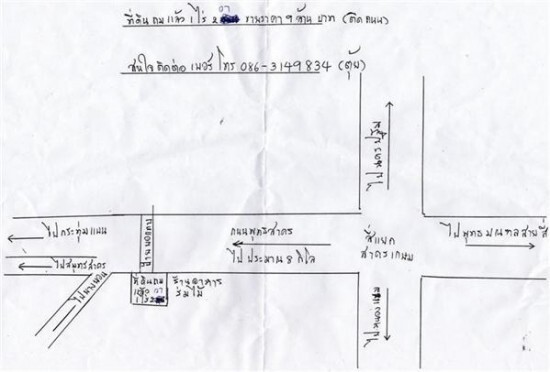 ที่ดินถมแล้ว 1 ไร่ 2 07 ขายราคา 9 ล้าน บาท (ติดถนน)
สนใจติดต่อ เบอร์โทร 086-3149834 (ตุ้ย)
ไปนครปฐม
ไปกระทุ่มแบน
ถนนพุทธสาคร
สี่แยก
สาครเกษม
ไปพุทธมณฑลสายสี่
ไปประมาณ 8 กิโล
ไปสมุทรสาคร
ที่ดินถม
แล้ว 07
1 ไร่ 2
ร้านอาหาร
ร่มไม้